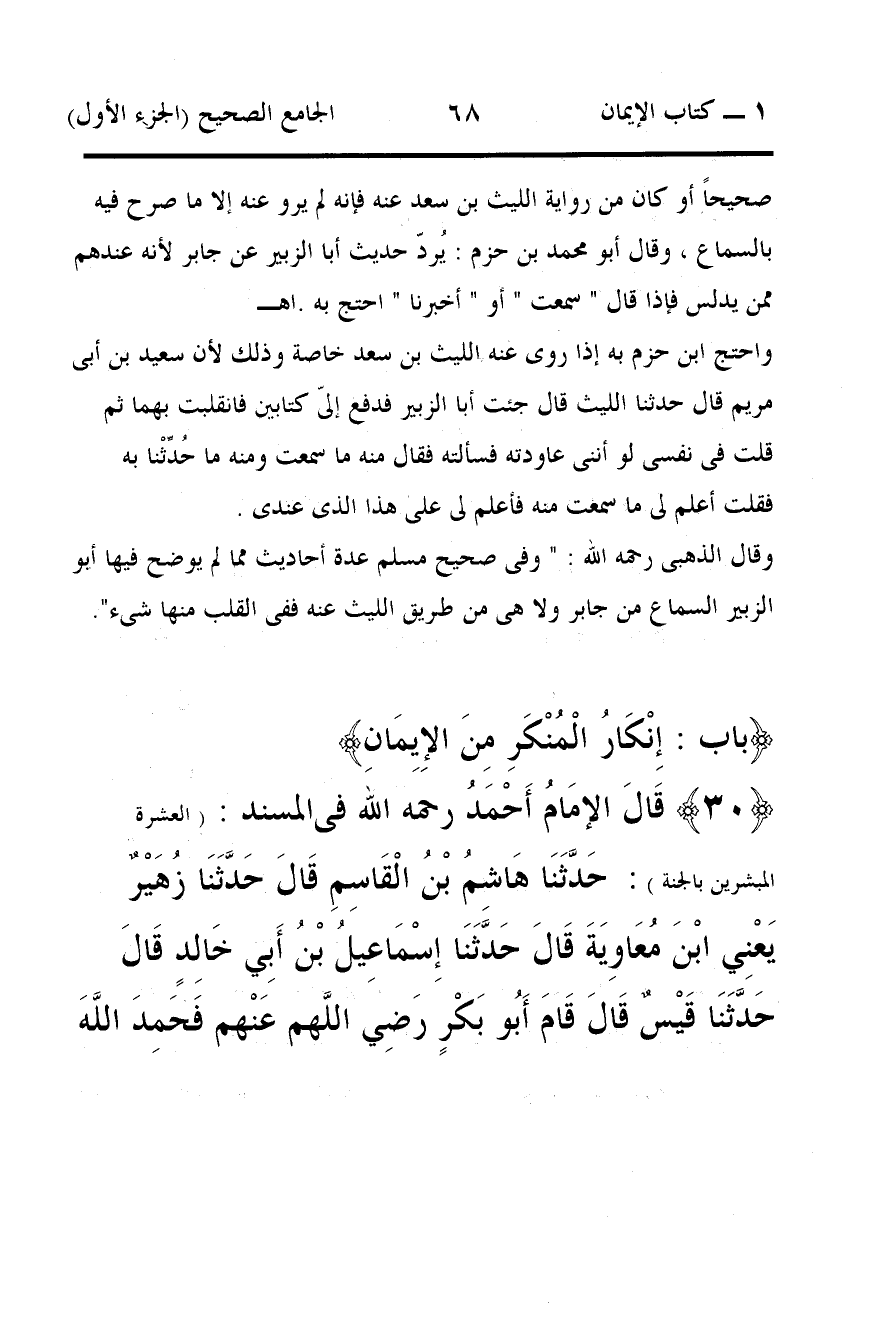 ١ ــ كتاب الإيمان ٦٨ الجامع الصحيح (الجزء الأول)
صحيحاً أو كان من رواية الليث بن سعد عنه فإنه لم يرو عنه إلا ما صرح فيه
بالسماع ، وقال أبو محمد بن حزم : يُردّ حديث أبا الزبير عن جابر لأنه عندهم
ممن يدلس فإذا قال " سمعت " أو " أخبرنا " احتج به .اهــ
واحتج ابن حزم به إذا روى عنه الليث بن سعد خاصة وذلك لأن سعيد بن أبى
مريم قال حدثنا الليث قال جئت أبا الزبير فدفع إلىّ كتابين فانقلبت بهما ثم
قلت فى نفسى لو أننى عاودته فسألته فقال منه ما سمعت ومنه ما حُدِّثْنا به
فقلت أعلم لى ما سمعت منه فأعلم لى على هذا الذى عندى .
وقال الذهبى رحمه الله : " وفى صحيح مسلم عدة أحاديث مما لم يوضح فيها أبو
الزبير السماع من جابر ولا هى من طريق الليث عنه ففى القلب منها شىء".
﴿باب : إِنْكَارُ الْمُنْكَرِ مِنَ الإِيِمَانِ﴾
﴿٣٠﴾ قَالَ الإمَامُ أَحْمَدُ رحمه الله فى المسند : ( العشرة
المبشرين بالجنة ) : حَدَّثَنَا هَاشِمُ بْنُ الْقَاسِمِ قَالَ حَدَّثَنَا زُهَيْرٌ
يَعْنِي ابْنَ مُعَاوِيَةَ قَالَ حَدَّثَنَا إِسْمَاعِيلُ بْنُ أَبِي خَالِدٍ قَالَ
حَدَّثَنَا قَيْسٌ قَالَ قَامَ أَبُو بَكْرٍ رَضِي اللَّهم عَنْهم فَحَمِدَ اللَّهَ